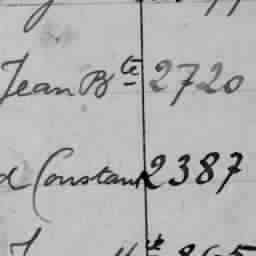 Jean Bte 2720
d Constant 2387